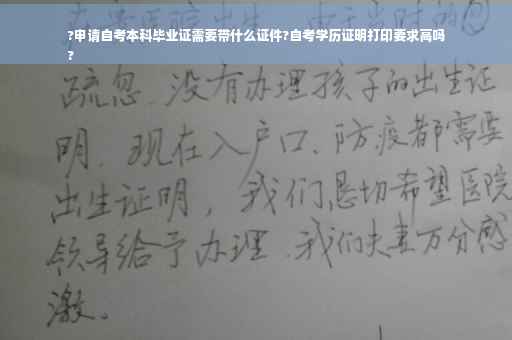 ?申请自考本科毕业证需要带什么证件?自考学历证明打印要求高吗
?
疏忽.没有办理孩子的出生证
明.现在入户口、防疫都需要
出生证明，我们恳切希望医院
领导给予办理.我们夫妻万分感
激。